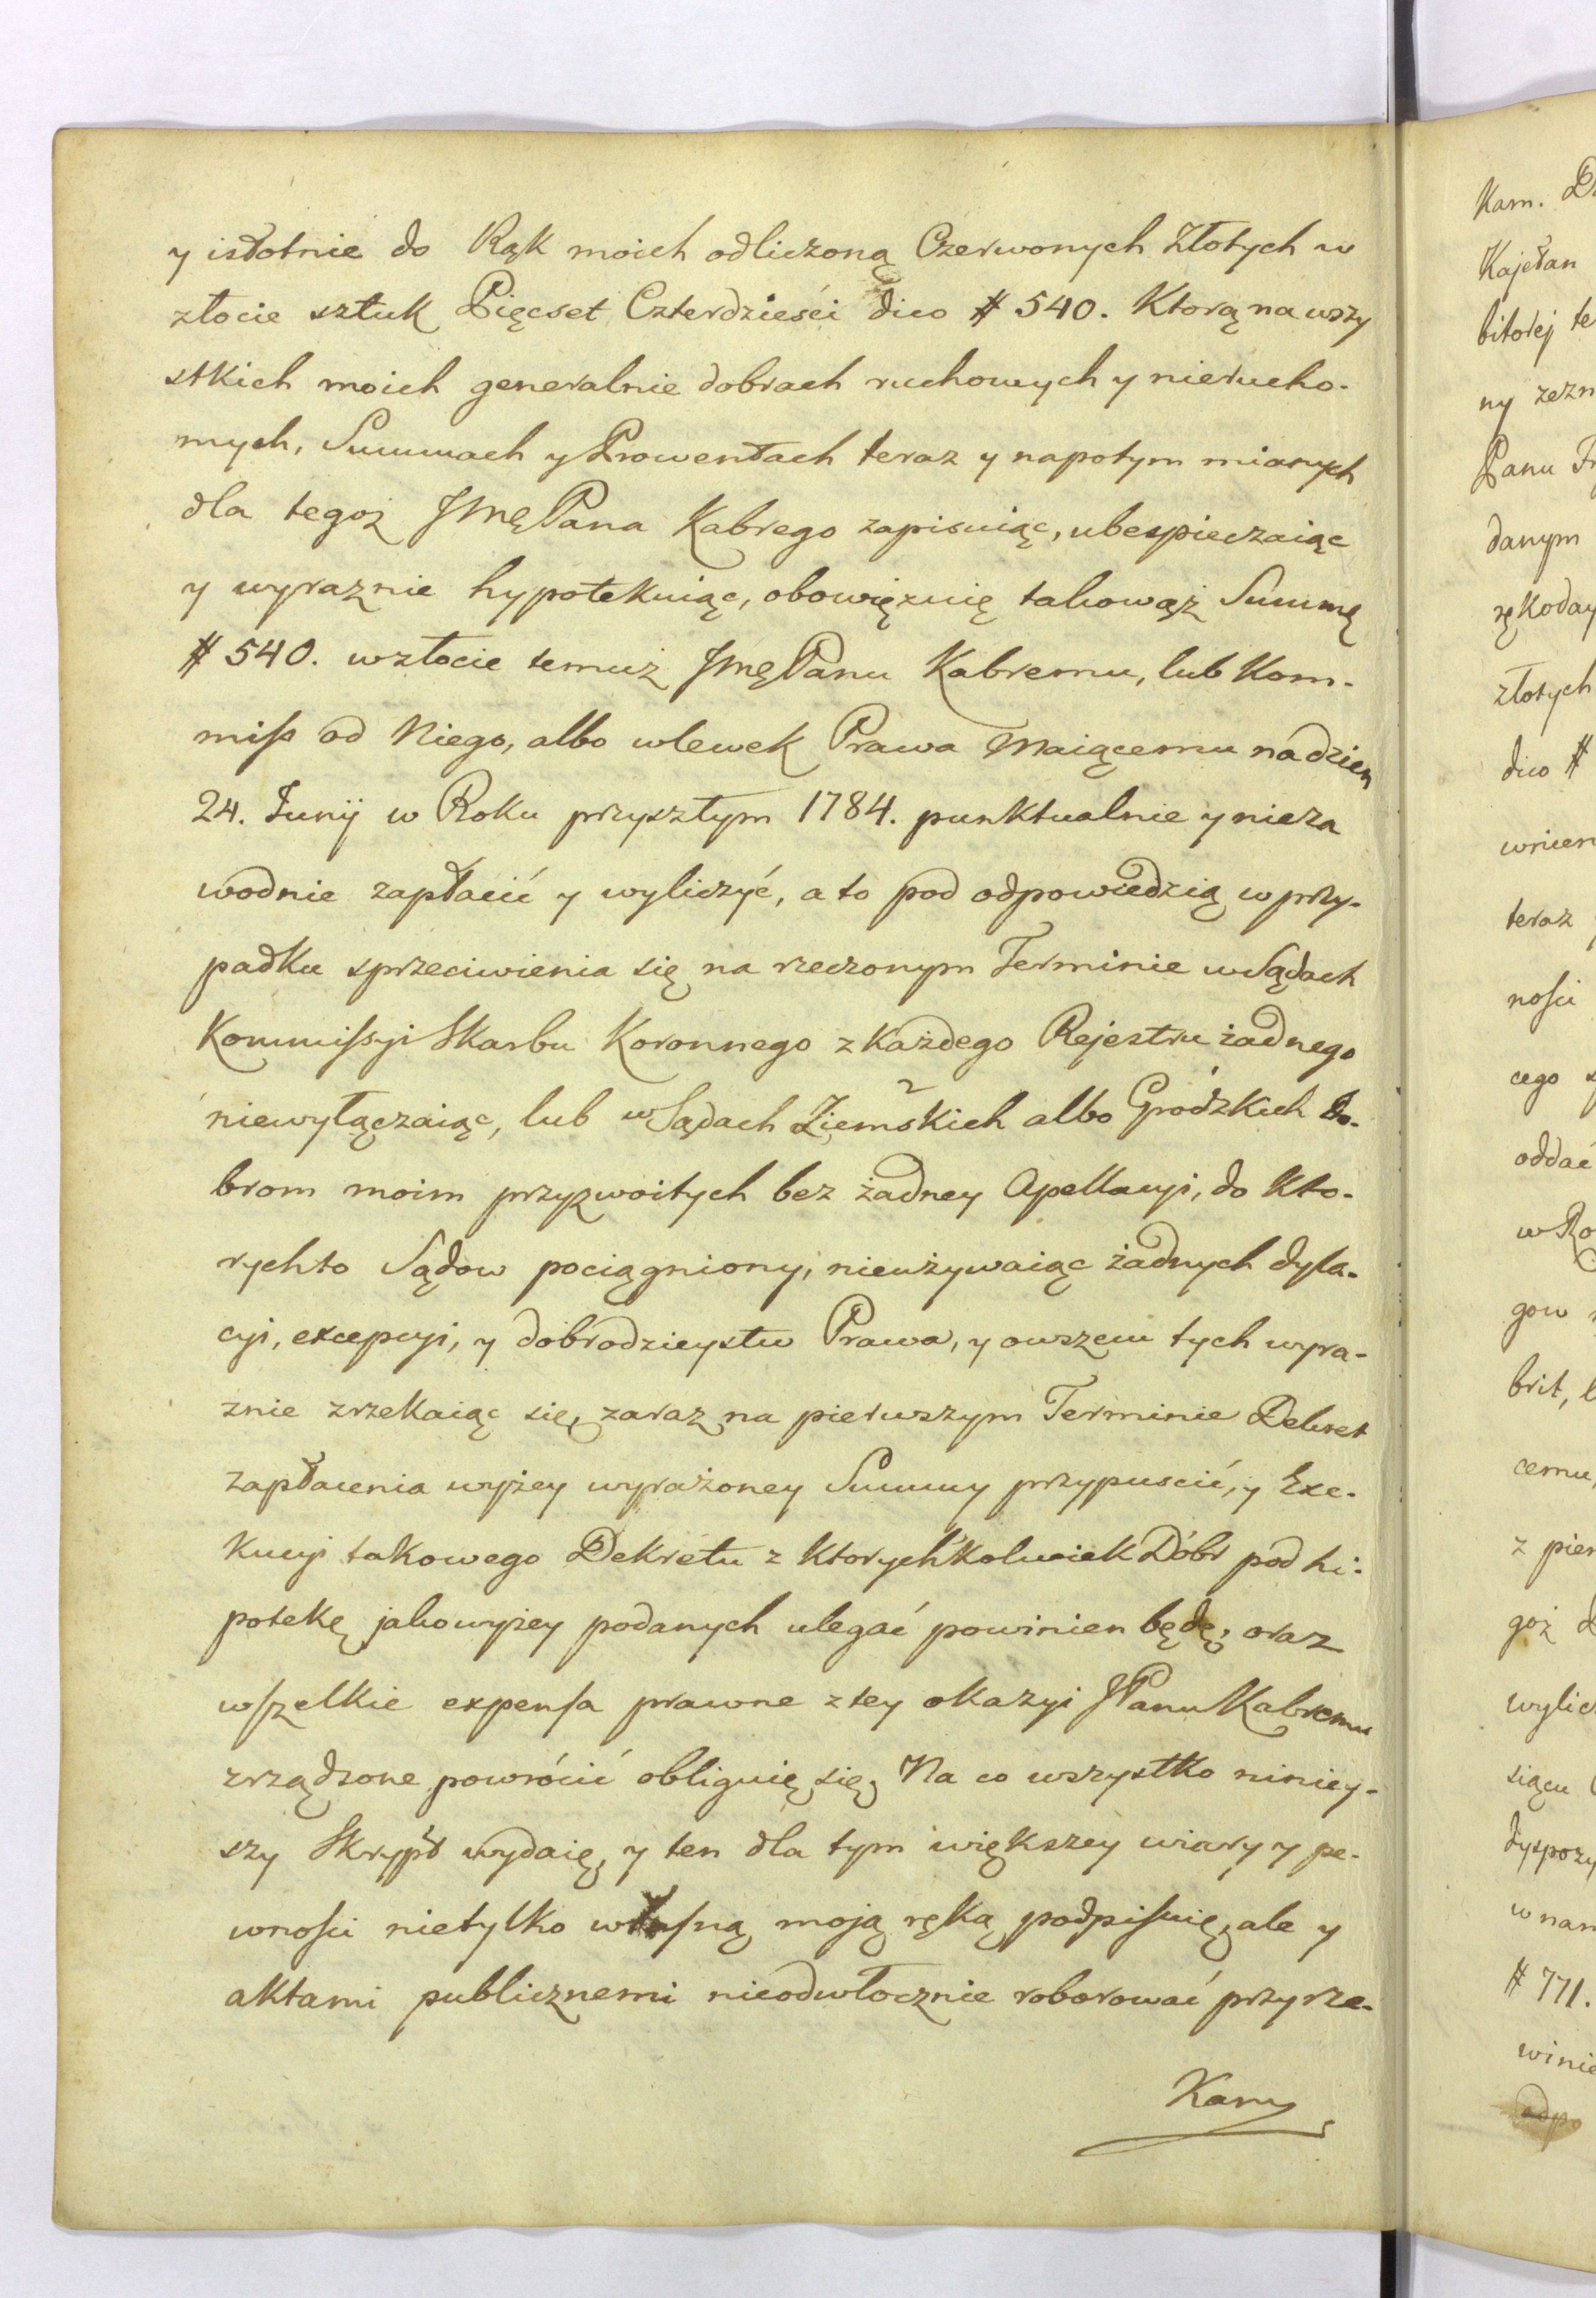 y istotnie do Rąk moich odliczoną Czerwonych Złotych w
złocie sztuk Pięcset Czterdzieści dico # 540. Ktorą na wszy
stkich moich generalnie dobrach ruchomych y nierucho-
mych, Summach y Prowentach teraz y napotym mianych
dla tegoż JmęPana Kabrego zapisuiąc, ubespieczaiąc
y wyraznie hypotekuiąc, obowięzuię takowąż Summę
# 540. wzłocie temuż JmęPanu Kabremu, lub Kom-
miss od Niego, albo wlewek Prawa Maiącemu na dzien
24. Junij w Roku przyszłym 1784. punktualnie y nieza
wodnie zapłacić y wyliczyć, a to pod odpowiedzią w przy-
padku sprzeciwienia się na rzeczonym Terminie w Sądach
Kommissyi Skarbu Koronnego z każdego Rejestru żadnego
niewyłączaiąc, lub w Sądach Ziemskich albo Grodzkich Do-
brom moim przyzwoitych bez żadney Apellacyi, do Kto-
rychto Sądow pociągniony, nieużywaiąc żadnych dyla-
cyi, excepcyi, y dobrodzieystw Prawa, y owszem tych wyra-
znie zrzekaiąc się, zaraz na pierwszym Terminie Dekret
zapłacenia wyżey wyrażoney Summy przypuscić, y Exe-
kucyi takowego Dekretu z ktorychkolwiek Dóbr pod hi-
potekę jakowyżey podanych ulegać powinien będę, oraz
wszelkie expensa prawne z tey okazyi JPanu Kabremu
zrządzone powrócić obliguię się. Na co wszystko niniey-
szy Skrypt wydaię, y ten dla tym większey wiary y pe-
wnosci nietylko własną moją ręką podpisuię, ale y
aktami publicznemi nieodwłocznie roborować przyrze-
Kam. 
Kajetan
bitorej te
ny zezn
Panu Fr
danym
rękoday
złotych
dico #
wnien
teraz
nosci
cego
oddać
w Ro
gow
brit, l
cemu,
z pier
goż d
wylic
siącu
dyspozy
w nan
# 771.
winie